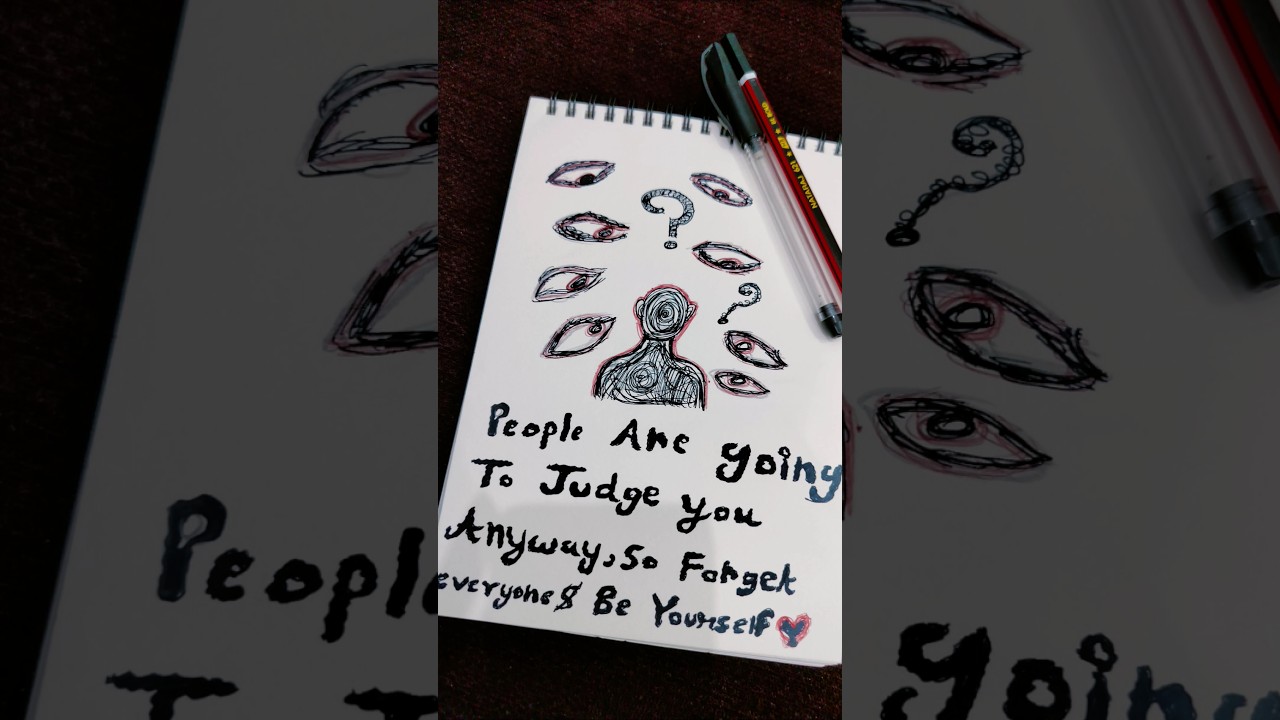 ?
?
People Are going
To Judge you
Anyway, So Forget
everyone & Be Yourself
NATARAJ 621